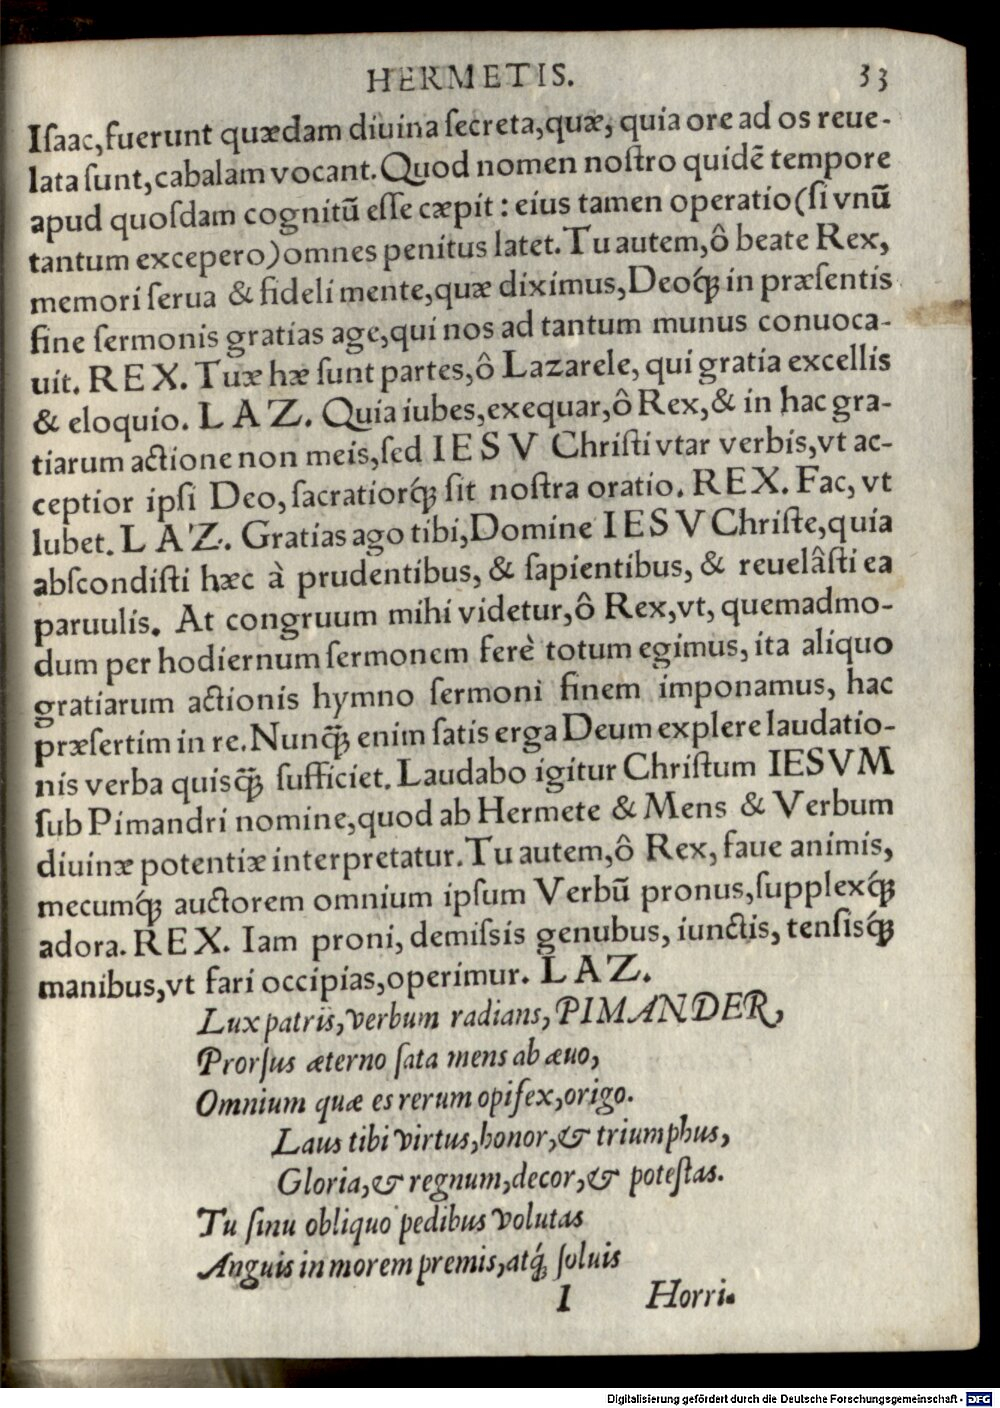 HERMETIS. 33
Iſaac,fuerunt quædam diuina ſecreta,quæ, quia ore ad os reue-
lata ſunt,cabalam vocant.Quod nomen noſtro quidẽ tempore
apud quoſdam cognitũ eſſe cæpit : eius tamen operatio(ſi vnũ
tantum excepero)omnes penitus latet.Tu autem,ô beate Rex,
memori ſerua & fideli mente,quæ diximus,Deoq́; in præſentis
fine ſermonis gratias age,qui nos ad tantum munus conuoca-
uit. REX. Tuæ hæ ſunt partes,ô Lazarele, qui gratia excellis
& eloquio. LAZ. Quia iubes,exequar,ô Rex,& in hac gra-
tiarum actione non meis,ſed IESV Chriſti vtar verbis,vt ac-
ceptior ipſi Deo,ſacratiorq́; ſit noſtra oratio. REX. Fac, vt
lubet. LAZ. Gratias ago tibi,Domine IESV Chriſte,quia
abſcondiſti hæc à prudentibus, & ſapientibus, & reuelâſti ea
paruulis. At congruum mihi videtur,ô Rex,vt, quemadmo-
dum per hodiernum ſermonem ferè totum egimus, ita aliquo
gratiarum actionis hymno ſermoni finem imponamus, hac
præſertim in re.Nunq̃; enim ſatis erga Deum explere laudatio-
nis verba quisq̃; ſufficiet. Laudabo igitur Chriſtum IESVM
ſub Pimandri nomine,quod ab Hermete & Mens & Verbum
diuinæ potentiæ interpretatur.Tu autem,ô Rex, faue animis,
mecumq́; auctorem omnium ipſum Verbũ pronus,ſupplexq́;
adora. REX. Iam proni, demiſsis genubus, iunctis, tenſisq́;
manibus,vt fari occipias,operimur. LAZ.
Lux patris,verbum radians, PIMANDER,
Prorſus æterno ſata mens ab æuo,
Omnium quæ es rerum opifex,origo.
Laus tibi virtus,honor,& triumphus,
Gloria,& regnum,decor,& poteſtas.
Tu ſinu obliquo pedibus volutas
Anguis in morem premis,atq́; ſoluis
I Horri-
Digitalisierung gefördert durch die Deutsche Forschungsgemeinschaft - DFG